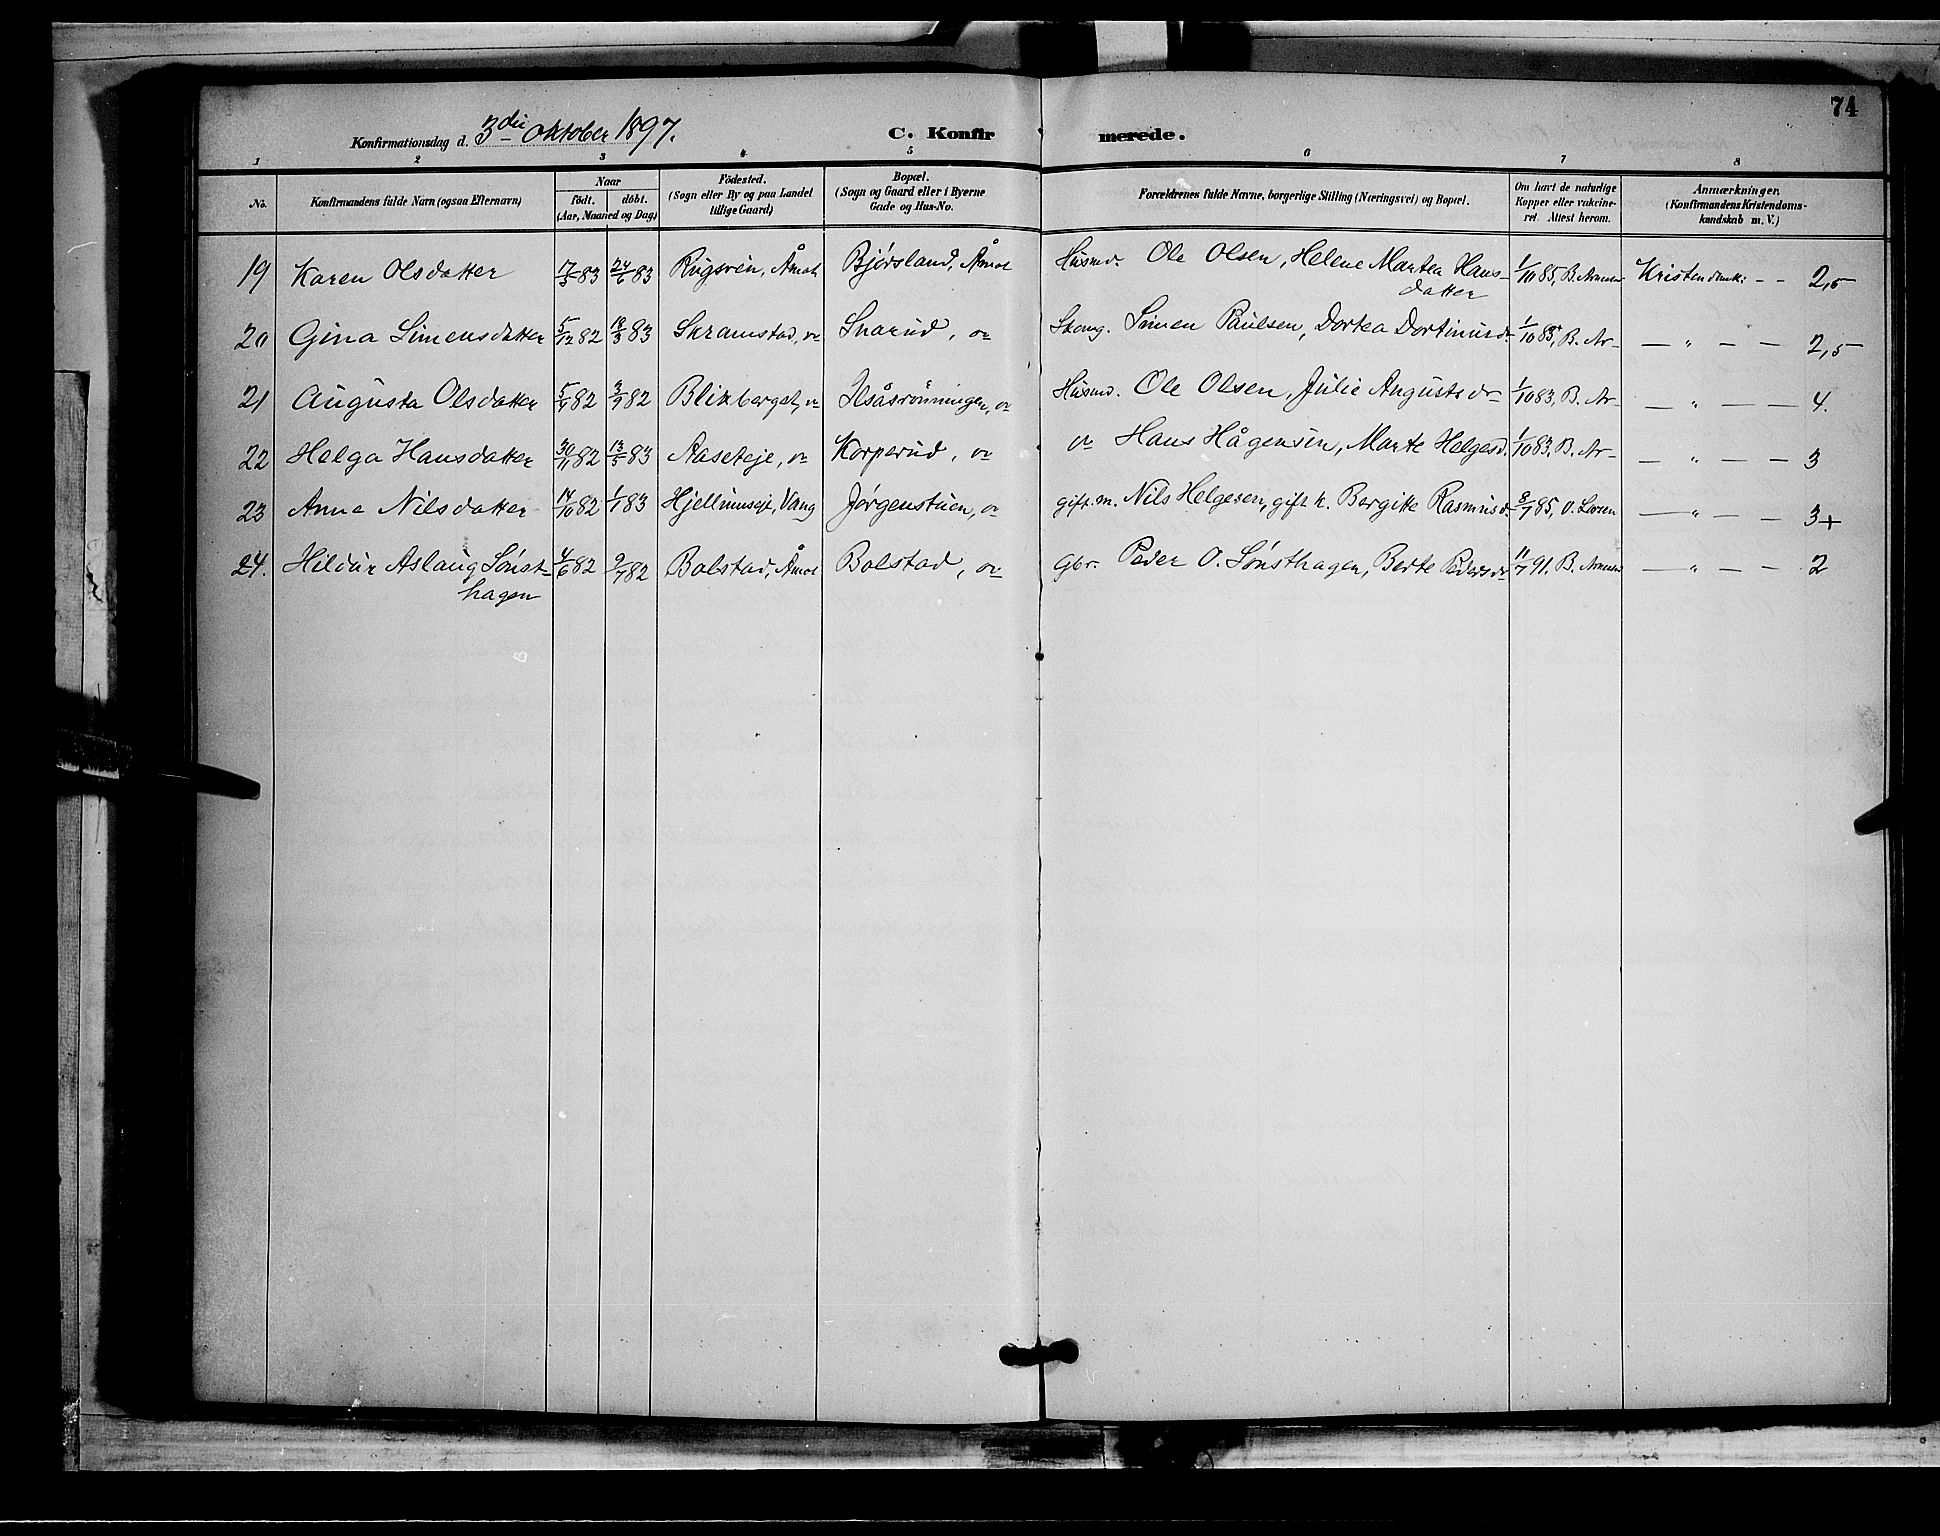 74
Konfirmationsdag d. 3die Oktober 1897.
C. Konfirmerede.
1 2 3 4 5 6 7 8
No. Konfirmandens fulde Navn (ogsaa Efternavn) Naar födt. döbt. (Aar, Maaned og Dag) Födested. (Sogn eller By og paa Landet tillige Gaard) Bopæl. (Sogn og Gaard eller i Byerne Gade og Hus-No. Forældrenes fulde Navne, borgerlige Stilling (Næringsvei) og Bopæl. Om havt de naturlige Kopper eller vakcineret. Attest herom. Anmærkninger. (Konfirmandens Kristendomskundskab m. V.)
19 Karen Olsdatter 17/5 83 24/6 83 Rugsven, Åmot Bjørsland, Åmot Husmd. Ole Olsen, Helene Martea Hans-datter 1/10 85, B. Kristendomsk: - - 2,5
20 Gina Simensdatter 5/12 82 18/3 83 Skramstad, Snarud, Simen Paulsen, Dortea Dortinusd. 1/10 85, B. Ar- — " — — 2,5
21 Augusta Olsdatter 82 3/9 82 Blikberget, Ilsåsrönningen, Husmd. Ole Olsen, Julie Augustsdr 1/10 83, B. Ar- — " — — 4.
22 Helga Hansdatter 30/11 82 13/5 83 Aaseteje, Korperud, Hans Hågensen, Marte Helgesd. 1/10 83, B. Ar- — " — — 3
23 Anna Nilsdatter 14/10 82 1/1 83 Hjellumseje, Vang Jørgenstuen, gift m. Nils Helgesen, gift k. Bergitte Rasmusd. 8/7 85, O. — " — — 3+
24. Hildur Aslaug Sønst-hagen 4/6 82 9/7 82 Bolstad, Åmot Bolstad, Gbr. Peder O. Sønsthagen, Berte Pedersdr 11/7 91. B. — " — — 2